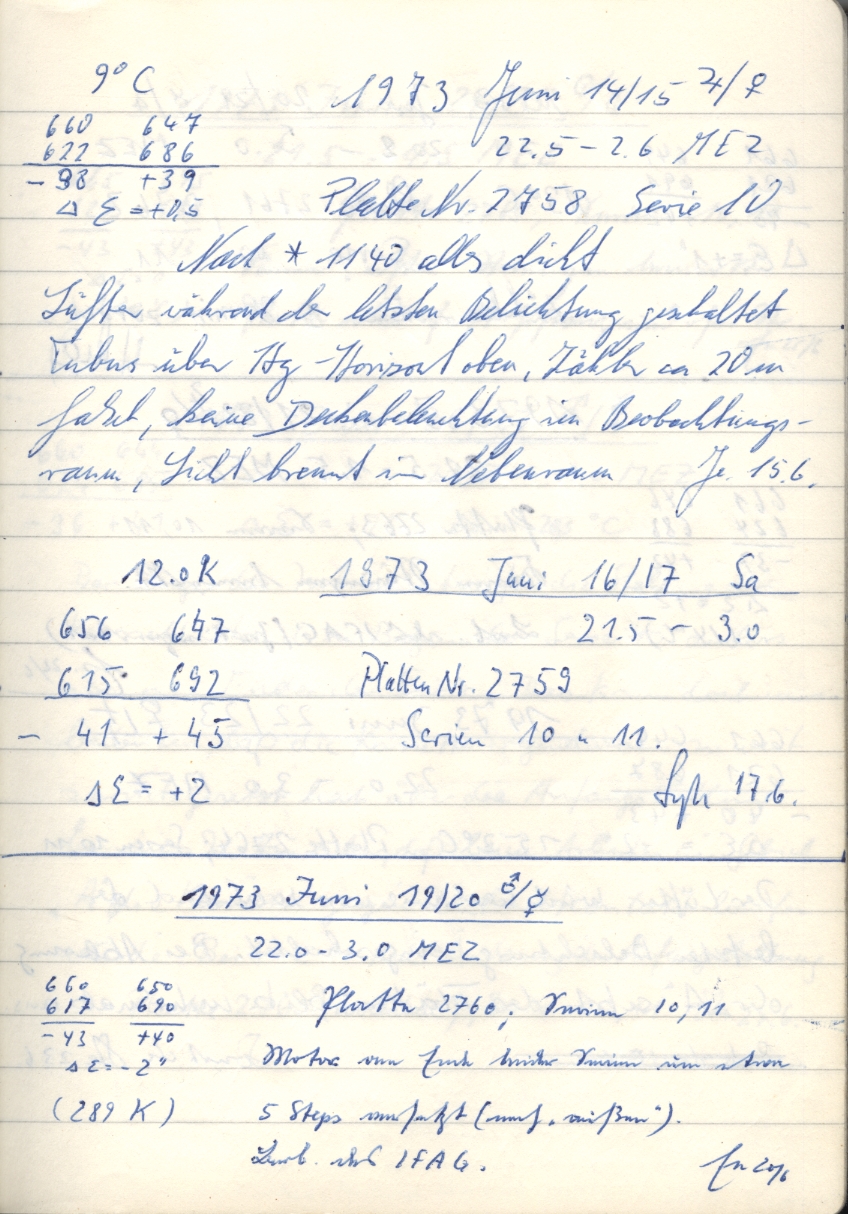 9° C
1973 Juni 14/15 ♃/♀
660 647
622 686
22.5 - 2.6 MEZ
- 38 +39
Δ Σ = +0.5
Platte Nr. 2758 Serie 10
Nach * 1140 alles dicht
Lüfter während der letzten Belichtung geschaltet
Tubus über Hg-Horizont oben, Zähler ca 20 m
fährt, keine Deckenbeleuchtung im Beobachtungs-
raum, Licht brennt im Nebenraum Je. 15.6.
12.0 K
1973 Juni 16/17 Sa
656 647
21.5 - 3.0
615 692
Platten Nr. 2759
- 41 + 45
Serien 10 u 11.
Δ Σ = +2
17.6.
1973 Juni 19/20 ♂/☿
22.0 - 3.0 MEZ
660 650
617 690
Platte 2760; Serien 10, 11
- 43 +40
Motor am Ende beider Serien um etwa
Δ Σ = - 2"
(289 K)
5 Steps versetzt (nach "außen").
Beob. des IFAG.
En 20/6